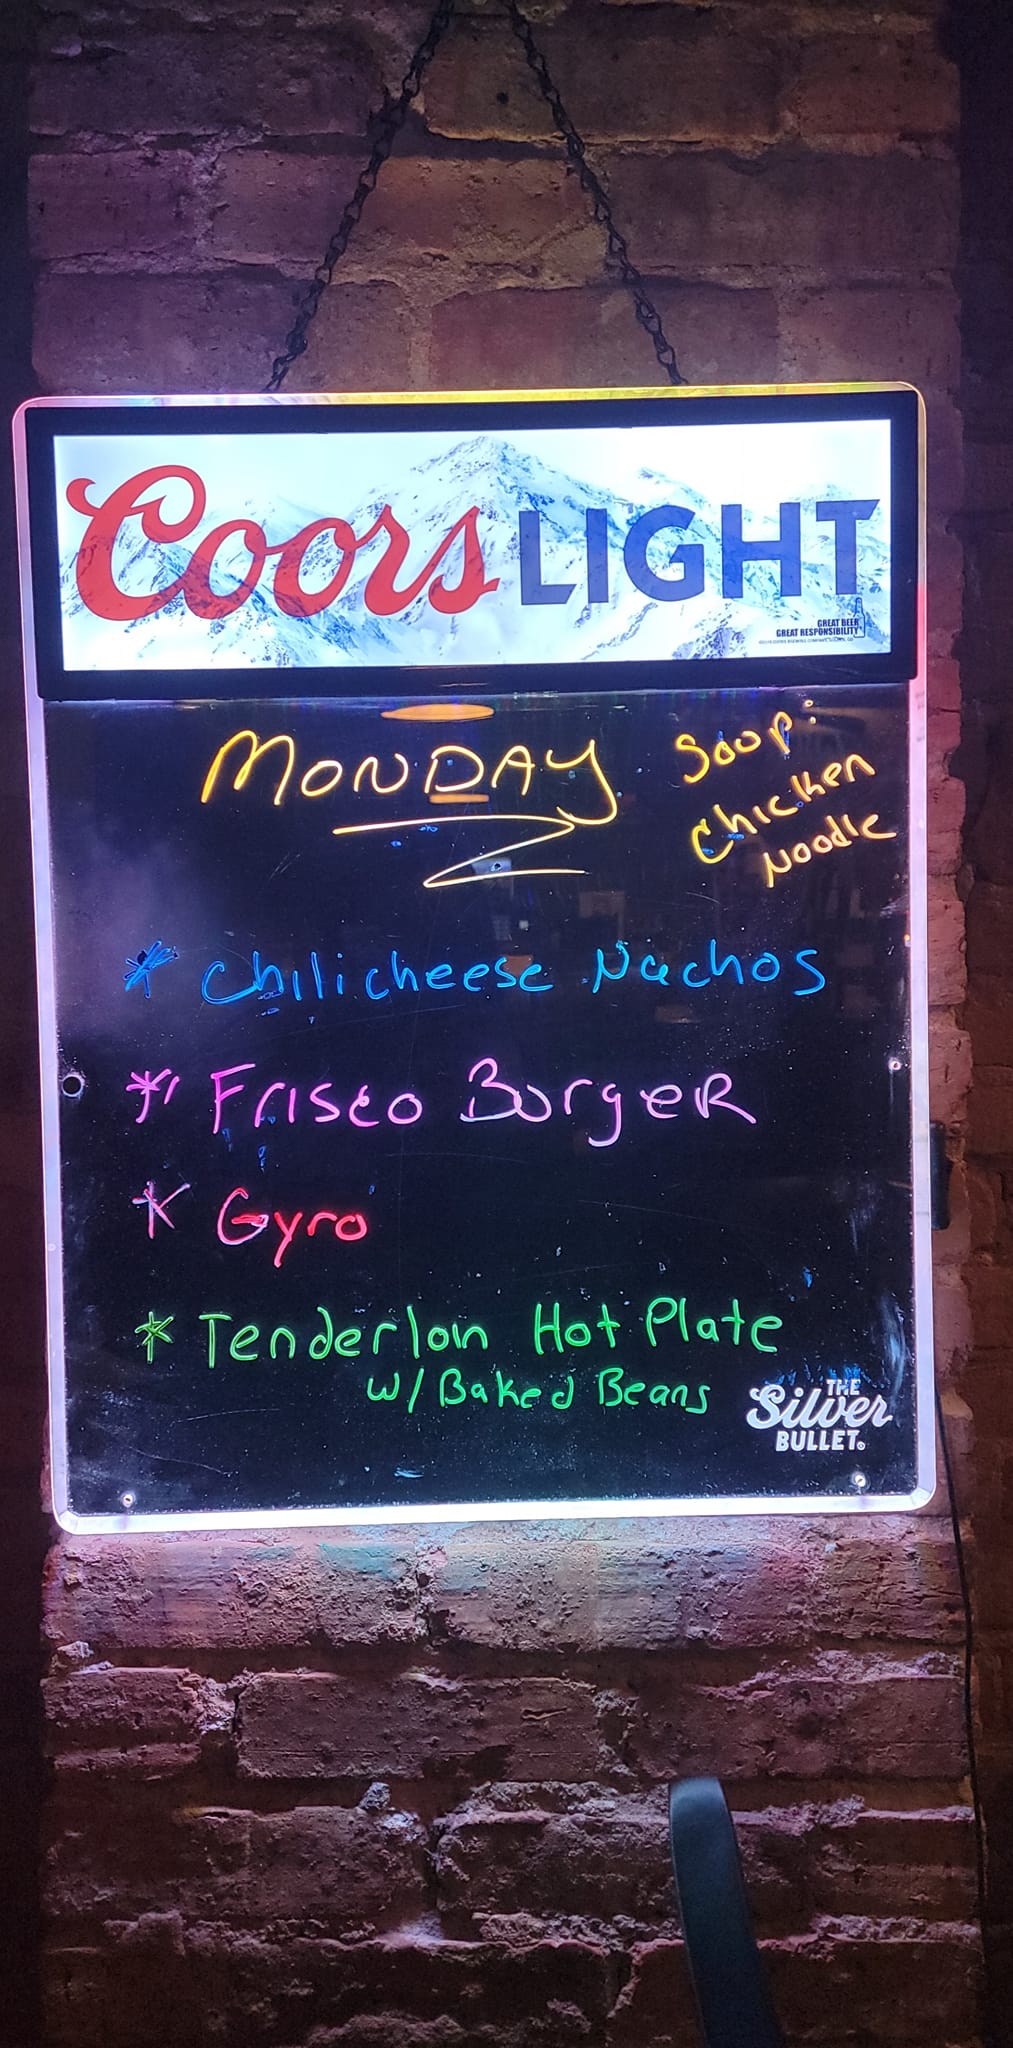 Coors LIGHT
GREAT BEER
GREAT RESPONSIBILITY
MONDAY
Soup:
Chicken
Noodle
* Chilicheese Nachos
* Frisco Burger
* Gyro
* Tenderloin Hot Plate
w/ Baked Beans
THE
Silver
BULLET.